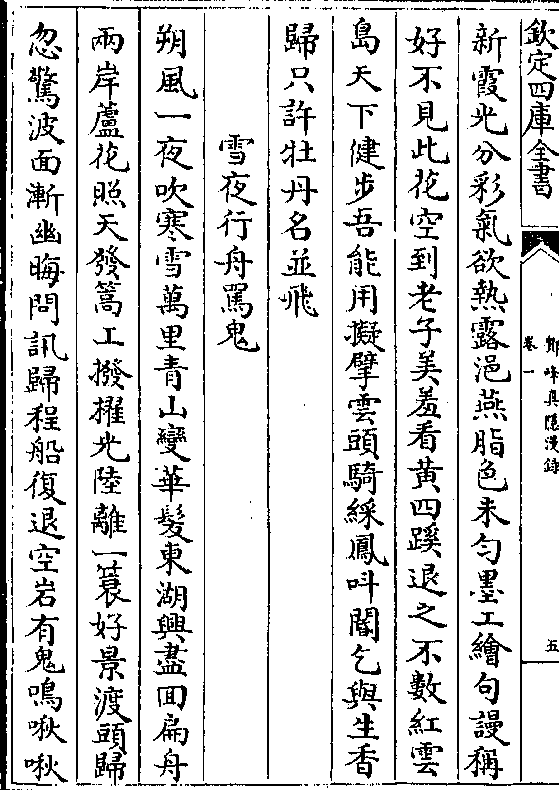 欽定四庫全書
鄮峰真隱漫錄
卷一
五
新霞光分彩氣欲熱露浥燕脂色未勻墨工繪句謾稱
好不見此花空到老子美羞看黄四蹊退之不數紅雲
島天下健步吾能用擬擘雲頭騎綵鳳呌閽乞與生香
歸只許牡丹名並飛
雪夜行舟罵鬼
朔風一夜吹寒雪萬里青山變華髮東湖興盡回扁舟
兩岸蘆花照天發篙工撥擢光陸離一蓑好景渡頭歸
忽驚波面漸幽晦問訊歸程船復退空岩有鬼鳴啾啾